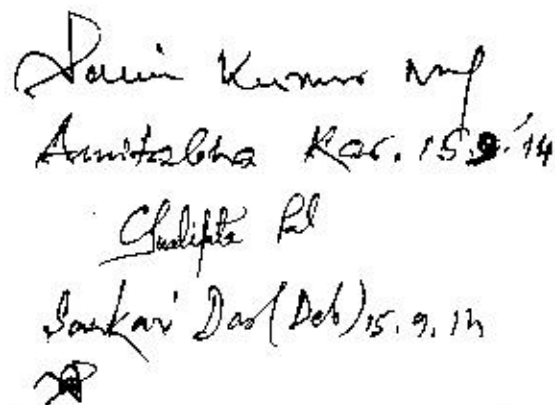 Kumar
Amitabha Kar. 15.9.'14
Sudipta Pal
Sankari Das (Deb) 15.9.14